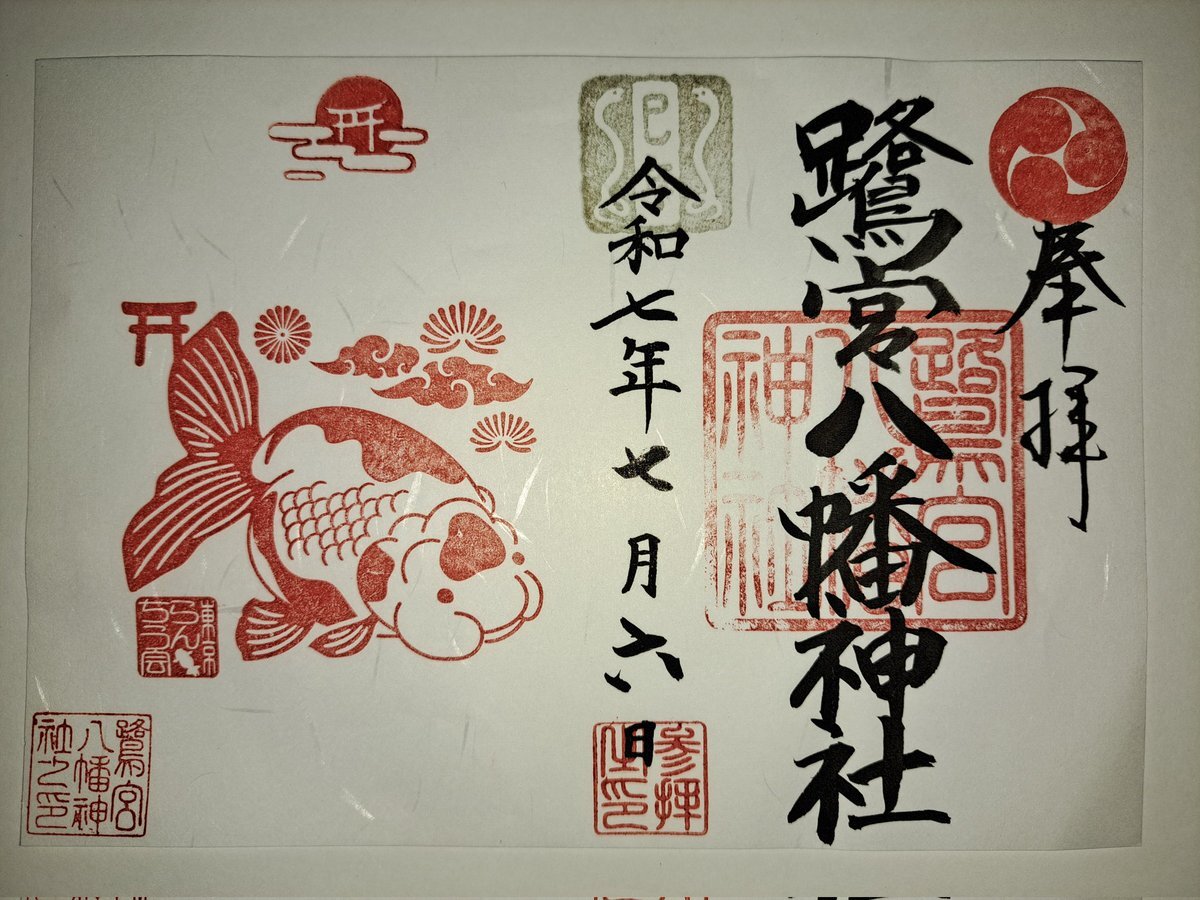 奉拝
鷺宮八幡神社
鷺宮
八幡
神社
巳
令和七年七月六日
参拝
東京
らん
ちう会
鷺宮
八幡神
社之印